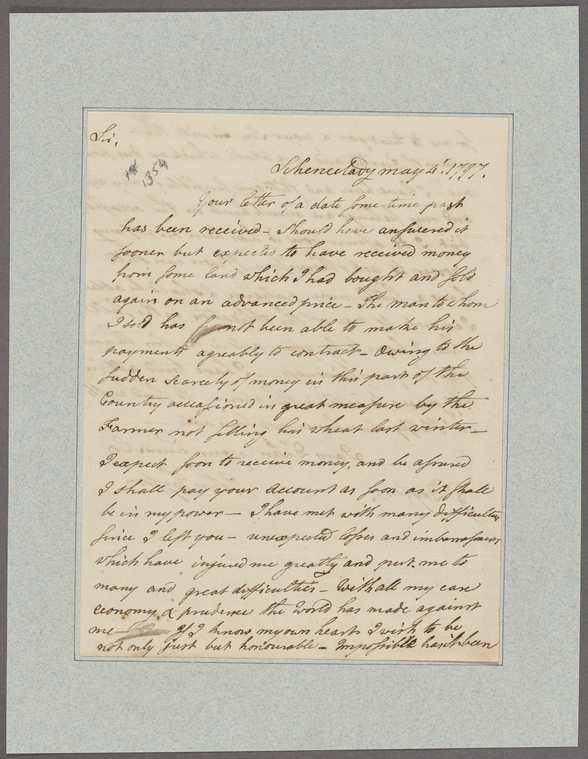 Sir,
1359
Schenectady may 4th. 1797.
Your letter of a date some time past
has been received – Should have answered it
sooner but expected to have received money
from some land which I had bought and sold
again on an advanced price – The man to whom
I sold has not been able to make his
payments agreably to contract – Owing to the
sudden scarcety of money in this part of the
Country occasioned in great measure by the
Farmer not selling his wheat last winter –
I expect soon to receive money, and be assured
I shall pay your account as soon as it shall
be in my power – I have met with many difficulties
since I left you – unexpected losses and imbarrassments
which have injured me greatly and put me to
many and great difficulties – With all my care
economy & prudence the World has made against
me – If I know my own heart I wish to be
not only just but honourable – Impossible has it been